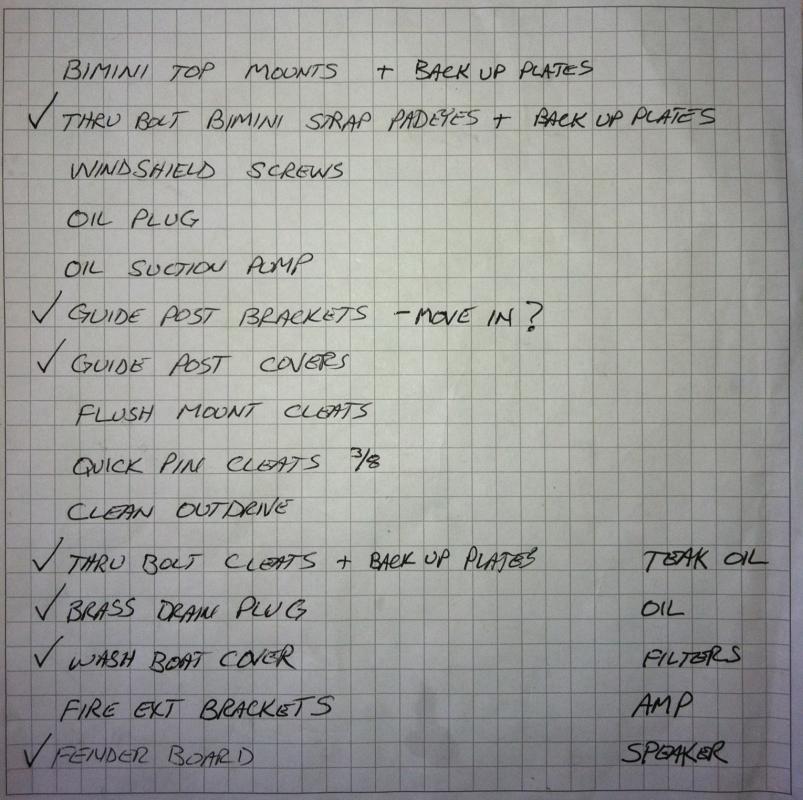 BIMINI TOP MOUNTS + BACK UP PLATES
✓ THRU BOLT BIMINI STRAP PADEYES + BACK UP PLATES
WINDSHIELD SCREWS
OIL PLUG
OIL SUCTION PUMP
✓ GUIDE POST BRACKETS - MOVE IN?
✓ GUIDE POST COVERS
FLUSH MOUNT CLEATS
QUICK PIN CLEATS 3/8
CLEAN OUTDRIVE
✓ THRU BOLT CLEATS + BACK UP PLATES TEAK OIL
✓ BRASS DRAIN PLUG OIL
✓ WASH BOAT COVER FILTERS
FIRE EXT BRACKETS AMP
✓ FENDER BOARD SPEAKER